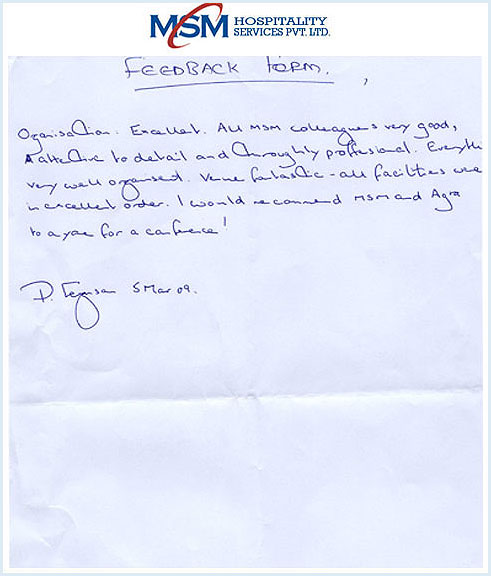 MSM HOSPITALITY
SERVICES PVT. LTD.
FEEDBACK FORM.
Organisation. Excellent. All MSM colleagues very good,
attentive to detail and thoroughly proffesional. Everythi
very well organised. Venue fantastic - all facilities were
in excellent order. I would recommend MSM and Agra
to anyone for a conference!
D. 5 Mar 09.